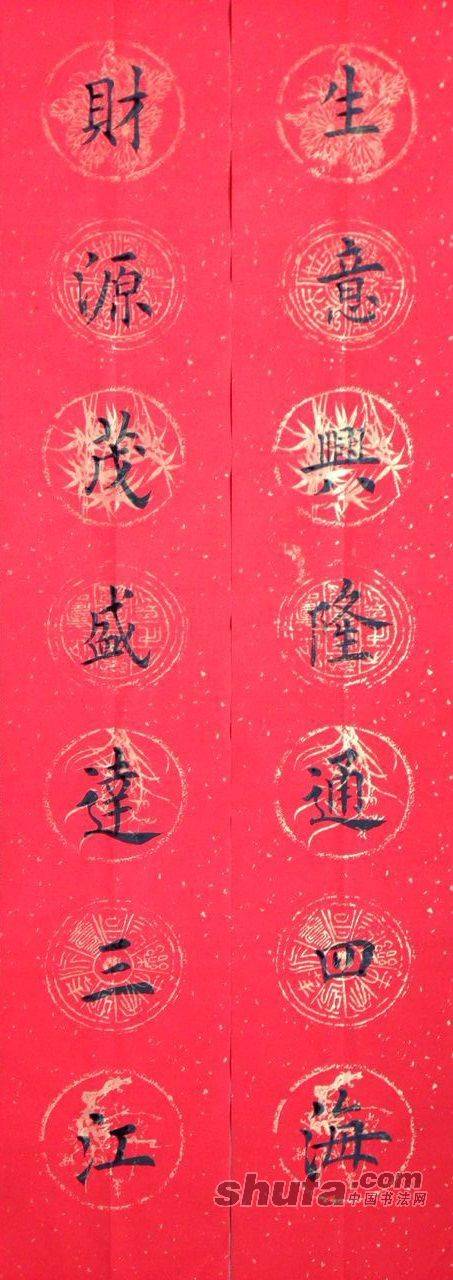 生意興隆通四海
財源茂盛達三江
shufa.com
中国书法网